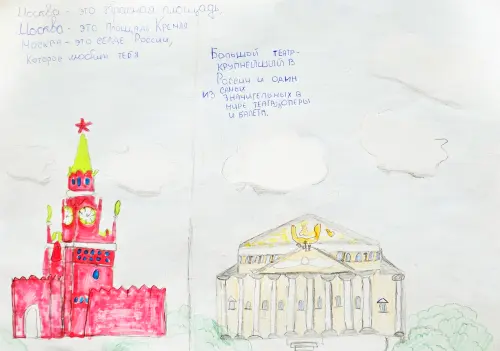 Москва - это Красная площадь
Москва - это площади Кремля
Москва - это сердце России,
Которое любит тебя
Большой театр-
крупнейший в
России и один
из самых
значительных в
мире театр оперы
и балета.